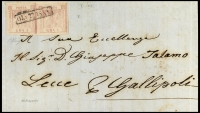 A Sua Eccellenza
Il Sig. D. Giuseppe Talamo
Lecce e Gallipoli